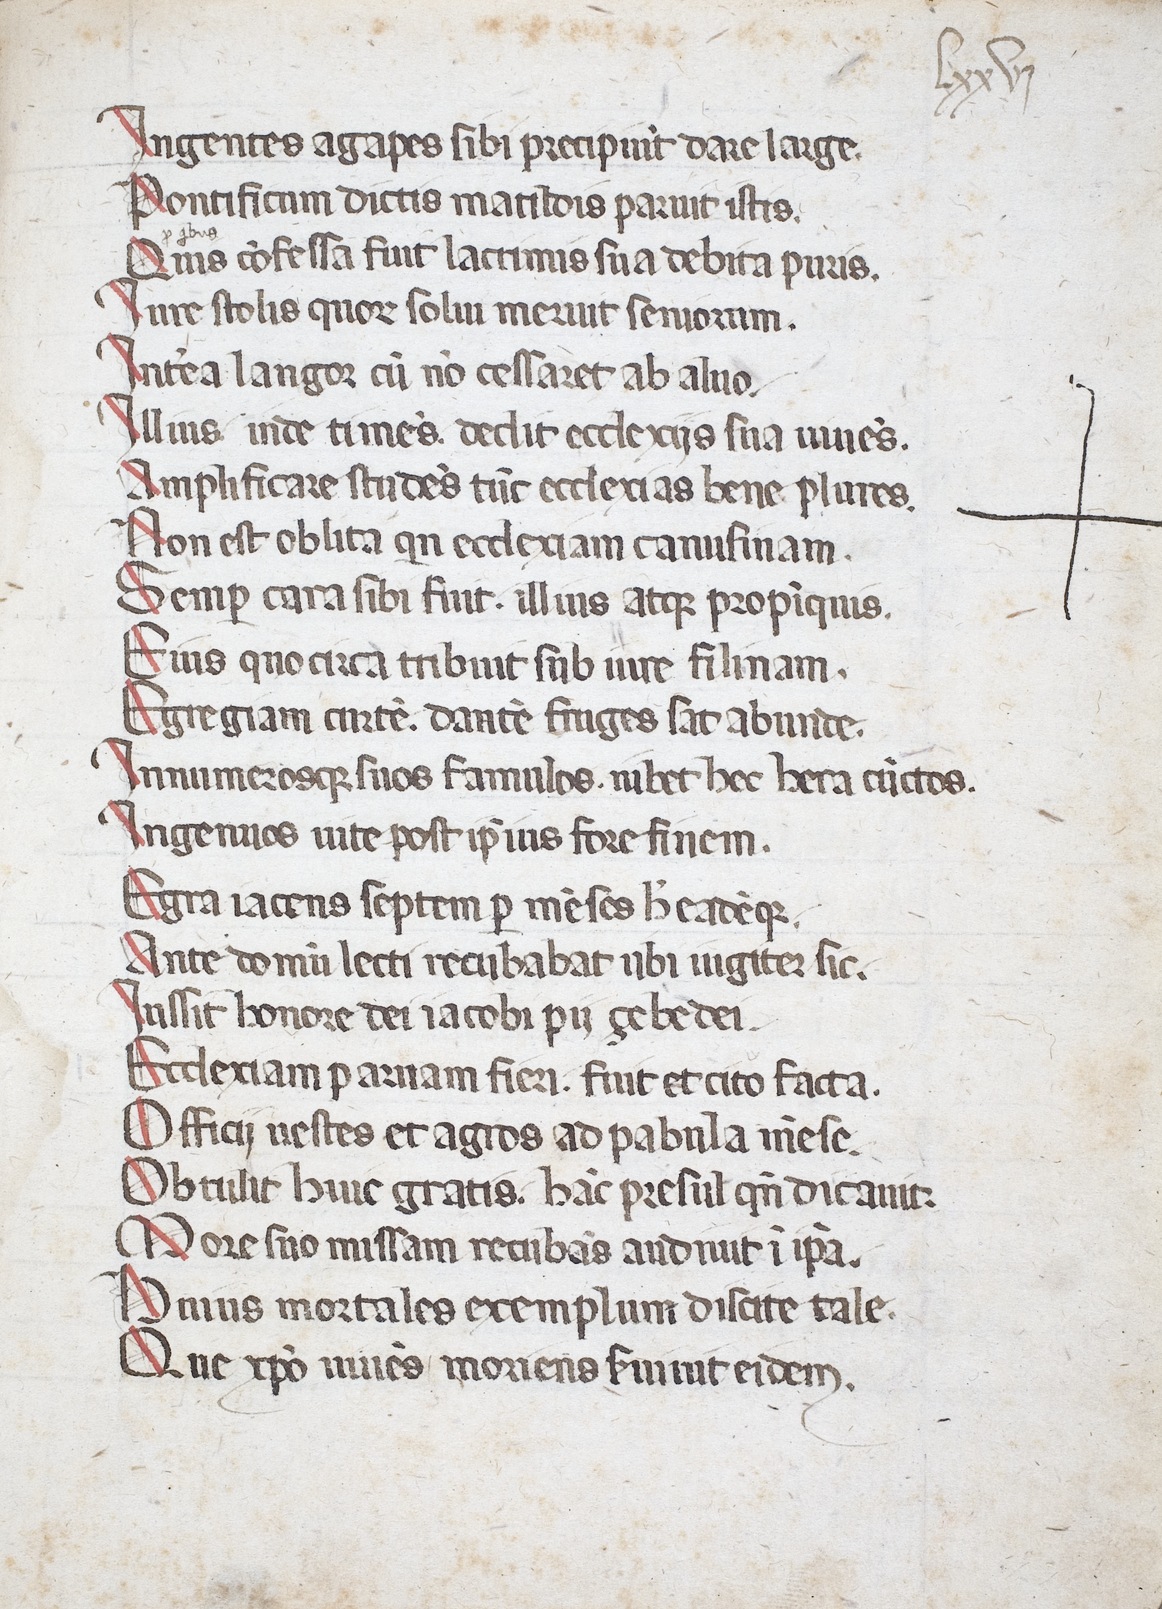 lxxvj
Ingentes agapes sibi precipiūt dare large.
Pontificum dictis matildis paruit istis.
p̱ q̇bus
Quis cōfessa fuit lacrimis sua debita puris.
Iure stolis quoꝝ solui meruit seniorum.
Int̄ea langor cū nō cessaret ab aluo.
Illius inde timēs. dedit ecclexijs sua uiuēs.
Amplificare studēs tūc ecclexias bene plures.
Non est oblita qn ecclexiam canusinam.
Semꝑ cara sibi fuit. illius atqꝫ propīquis.
Eius quocirca tribuit sub iure filinam.
Egregiam curtē. dantē fruges sat abunde.
Innumerosqꝫ suos famulos. iubet hec hera cūctos.
Ingenuos uite post ip̄ius fore finem.
Egra iacens septem ꝑ mēses h̄ eadēqꝫ.
Ante domū lecti recubabat ubi iugiter sic.
Iussit honore dei iacobi pij çebedei.
Ecclexiam paruam fieri. fuit et cito facta.
Officij uestes et agros ad pabula mēse.
Obtulit huic gratis. hāc presul qn̄ dicauit.
More suo missam recubās audiuit ī ip̄a.
Huius mortales exemplum discite tale.
Que xp̄o uiuēs moriens seruiuit eidem.